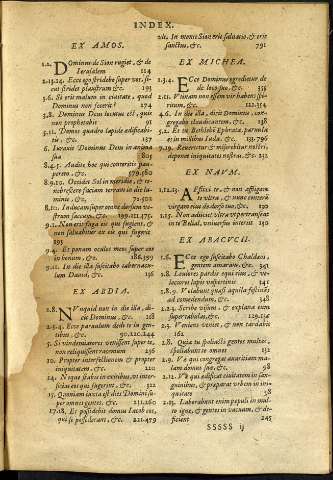 INDEX.
EX AMOS.
1.2. Dominus de Sion rugiet, & de
Ierusalem 114
2.13.14. Ecce ego stridebo super vos, si-
cut stridet plaustrum &c. 195
3.6. Si erit malum in ciuitate, quod
Dominus non fecerit? 274
3.8. Dominus Deus locutus est, quis
non prophetabit 91
5.11. Domos quadro lapide ædificabi-
tis, &c. 137
6. Iurauit Dominus Deus in anima
sua 805
8.4.5. Audite hoc qui conteritis pau-
perem, &c. 579.580
8.9.10. Occidet Sol in meridie, & te-
nebrescere faciam terram in die lu-
minis, &c. 72.502
8.10. &c.
9.1. Non erit fuga eis qui fugient, &
non saluabitur ex eis qui fugerit
195
9.4. Et ponam oculos meos super eos
in malum, &c. 186.399
9.11. In die illa suscitabo tabernacu-
lum Dauid, &c. 136
EX ABDIA.
1.8. Nunquid non in die illa, di-
cit Dominus, &c. 168
2. Ecce paruulum dedi te in gen-
tibus, &c. 90.122.244
5. Si vindemiatores venissent super te,
non reliquissent racemum 236
10. Propter interfectionem & propter
iniquitatem, &c. 220
14. Neque stabis in exitibus, vt inter-
ficias eos qui fugerint, &c. 322
15. Quoniam iuxta est dies Domini su-
per omnes gentes, &c. 211.260
17.18. Et possidebit domus Iacob eos,
qui se possederant, &c. 221.479
vile. In monte Sion erit saluatio, & erit
sanctus, &c. 791
EX MICHEA.
1.3.4. Ecce Dominus egredietur de
de loco suo, &c. 355
2.11. Vtinam non essem vir habens spi-
ritum, &c. 122.354
4.6. In die illa, dicit Dominus, con-
gregabo claudicantem, &c. 238
5.2. Et tu Bethlehem Ephrata, paruula
es in millibus Iuda, &c. 133.796
7.19. Reuertetur & miserebitur nostri,
deponet iniquitates nostras, &c. 152
EX NAVM.
1.12.13. Afflixi te, & non affligam
te vltra, & nunc conteram
virgam eius de dorso tuo, &c. 130
1.15. Non adiiciet vltra vt pertranseat
in te Belial, vniuersus interiit
EX ABACVCII.
1.6. Ecce ego suscitabo Chaldæos,
gentem amaram, &c. 351
1.8. Leuiores pardis equi eius, & ve-
lociores lupis vespertinis 141
1.8.9. Volabunt quasi aquila festinãs
ad comedendum, &c. 348
2.2.3. Scribe visum, & explana eum
super tabulas, &c. 129.134
2.3. Veniens veniet, & non tardabit
162
2.8. Quia tu spoliasti gentes multas,
spoliabunt te omnes 132
2.9. Væ qui congregat auaritiam ma-
lam domui suæ, &c. 98
2.12. Væ qui ædificat ciuitatem in san-
guinibus, & præparat vrbem in ini-
quitate 38
2.13. Laborabunt enim populi in mul-
to igne, & gentes in vacuum, & de-
ficient 245
SSSSS ij